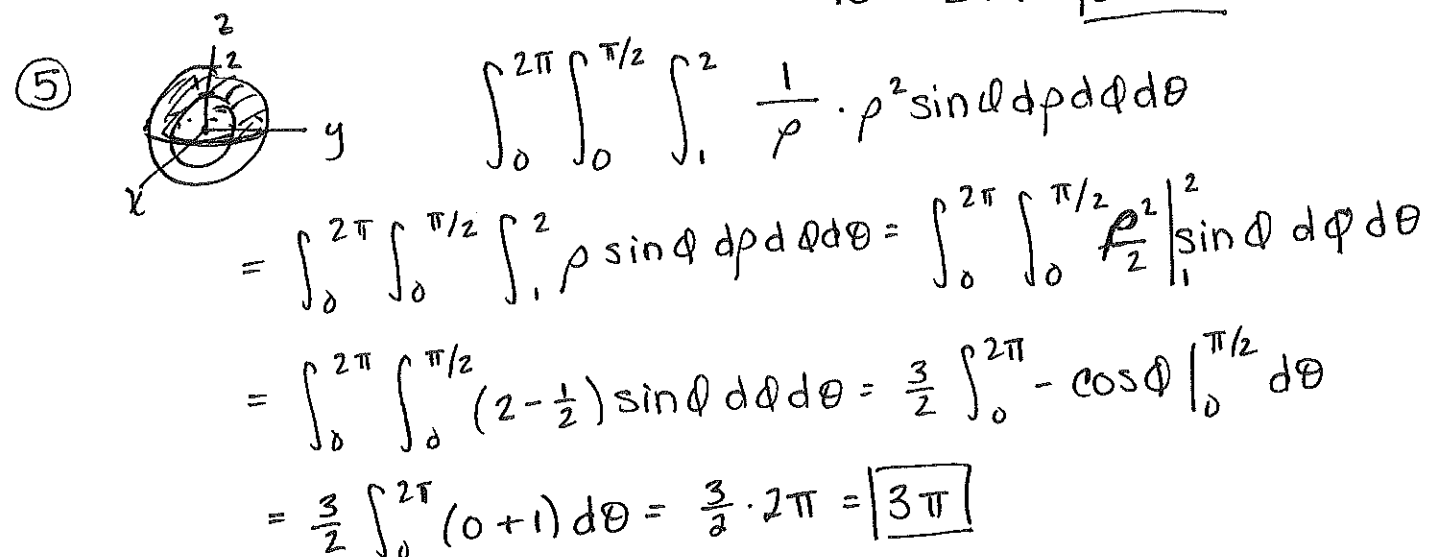 ⑤ z 2 y x ∫₀^{2π} ∫₀^{π/2} ∫₁² 1/ρ · ρ² sin φ dρ dφ dθ
= ∫₀^{2π} ∫₀^{π/2} ∫₁² ρ sin φ dρ dφ dθ = ∫₀^{2π} ∫₀^{π/2} ρ²/2 |₁² sin φ dφ dθ
= ∫₀^{2π} ∫₀^{π/2} (2 - 1/2) sin φ dφ dθ = 3/2 ∫₀^{2π} - cos φ |₀^{π/2} dθ
= 3/2 ∫₀^{2π} (0 + 1) dθ = 3/2 · 2π = 3π